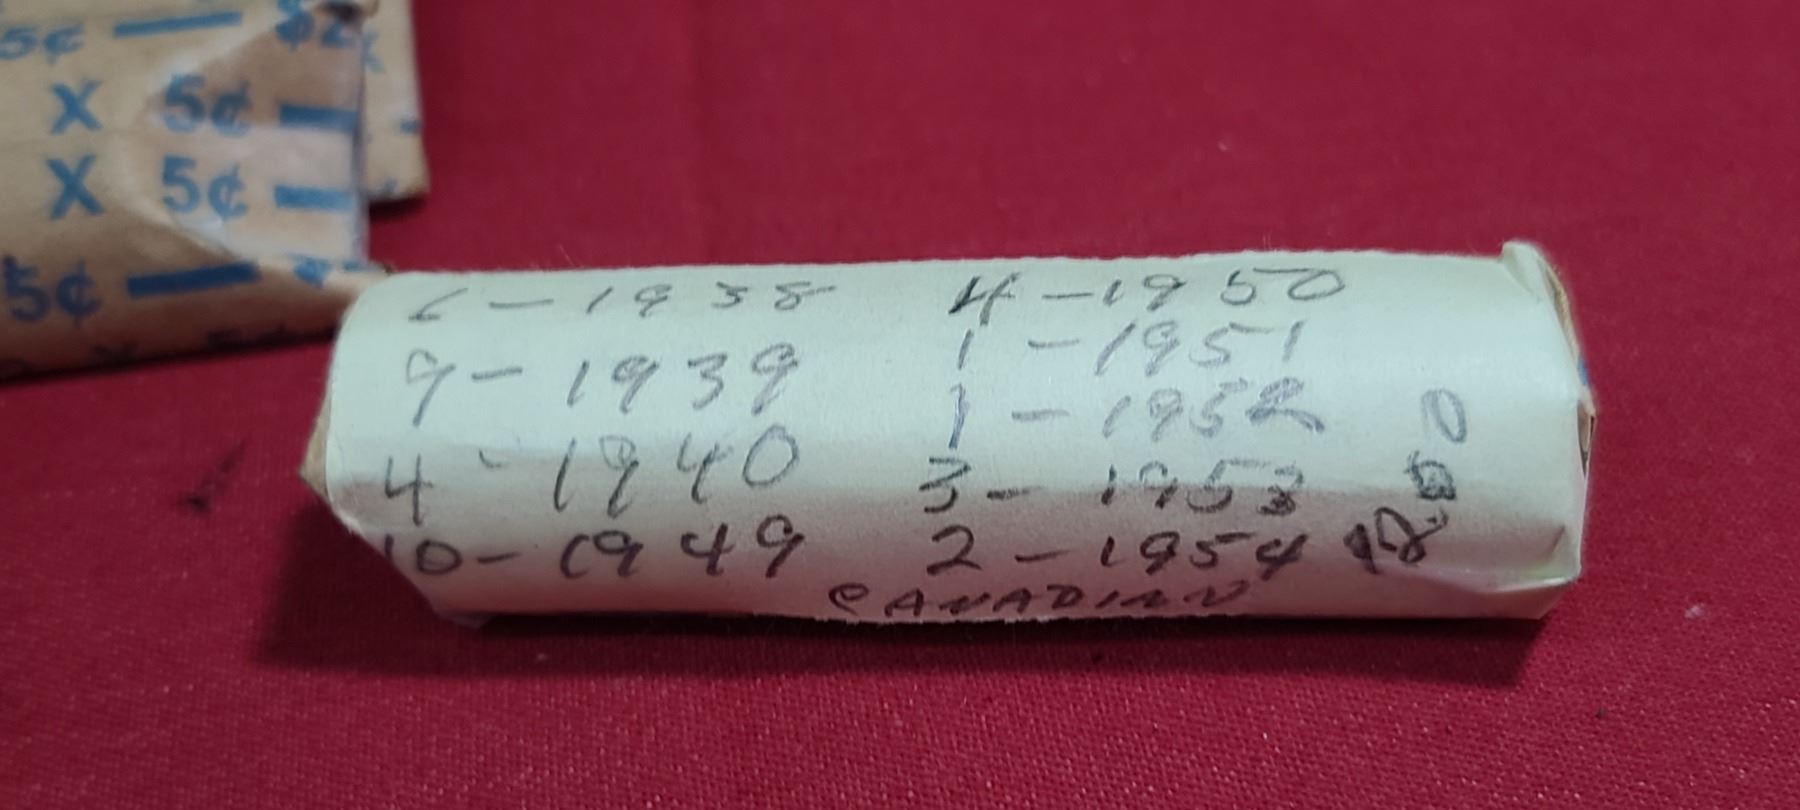 5¢ — $2
X 5¢ —
X 5¢ —
5¢ —
6 - 1938
9 - 1939
4 - 1940
10 - 1949
4 - 1950
1 - 1951
1 - 1952 0
3 - 1953
2 - 1954
CANADIAN